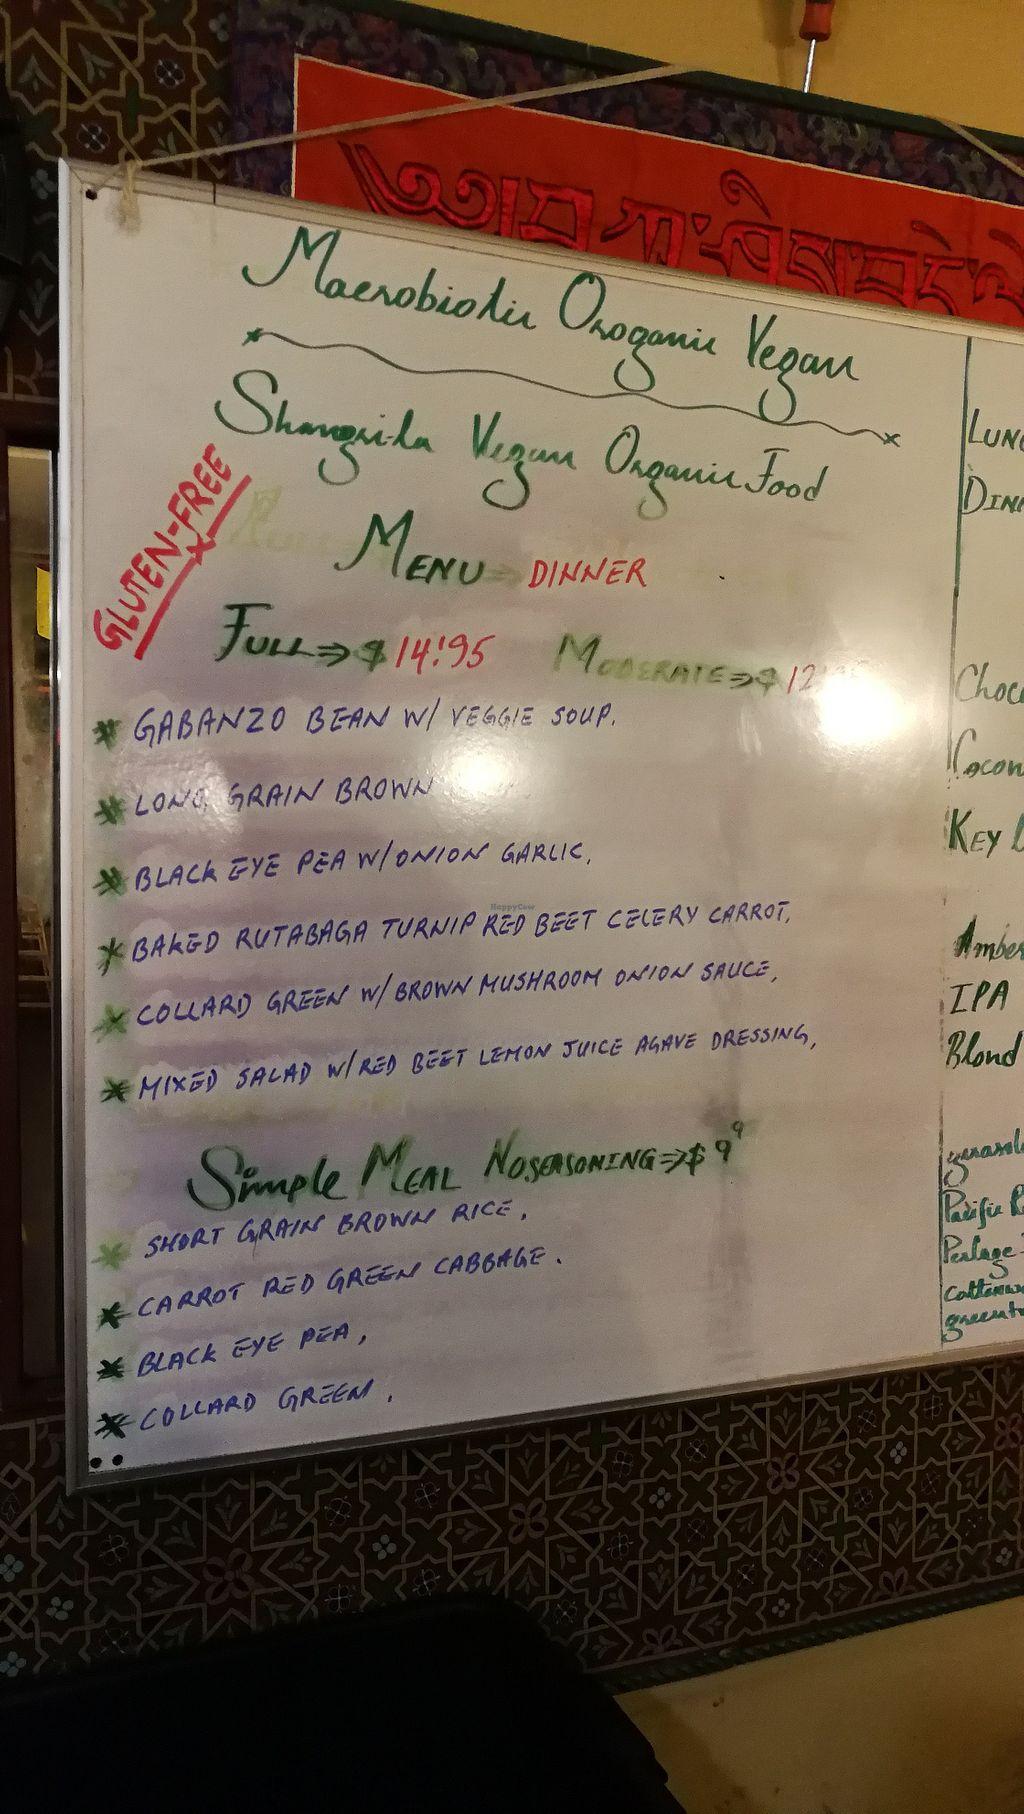 Macrobiotic Oroganic Vegan
Shangri-la Vegan Organic Food
GLUTEN-FREE
MENU DINNER
FULL⇒$14.95 MODERATE⇒$12
* GABANZO BEAN W/ VEGGIE SOUP.
* LONG GRAIN BROWN
* BLACK EYE PEA W/ONION GARLIC,
* BAKED RUTABAGA TURNIP RED BEET CELERY CARROT,
* COLLARD GREEN W/BROWN MUSHROOM ONION SAUCE,
* MIXED SALAD W/RED BEET LEMON JUICE AGAVE DRESSING,
Simple MEAL NO.SEASONING⇒$9⁹
* SHORT GRAIN BROWN RICE,
* CARROT RED GREEN CABBAGE.
* BLACK EYE PEA,
* COLLARD GREEN,
LUN
DIN
Choc
Cocon
KEY
Amber
IPA
Blond
Pacific
HappyCow